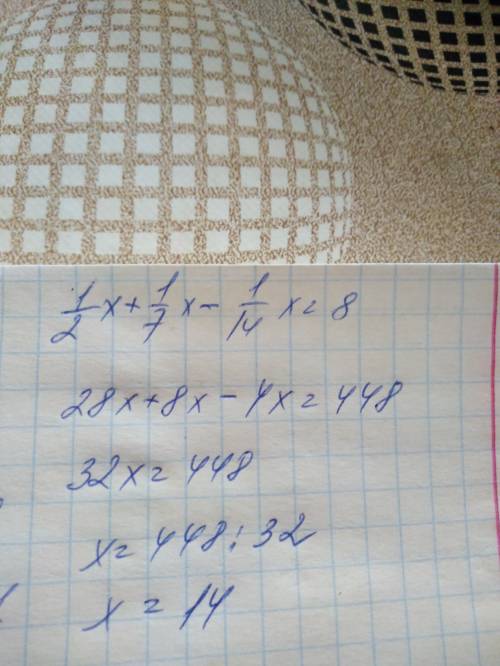 1/2 x + 1/7 x - 1/14 x = 8
28x + 8x - 4x = 448
32x = 448
x = 448 : 32
x = 14